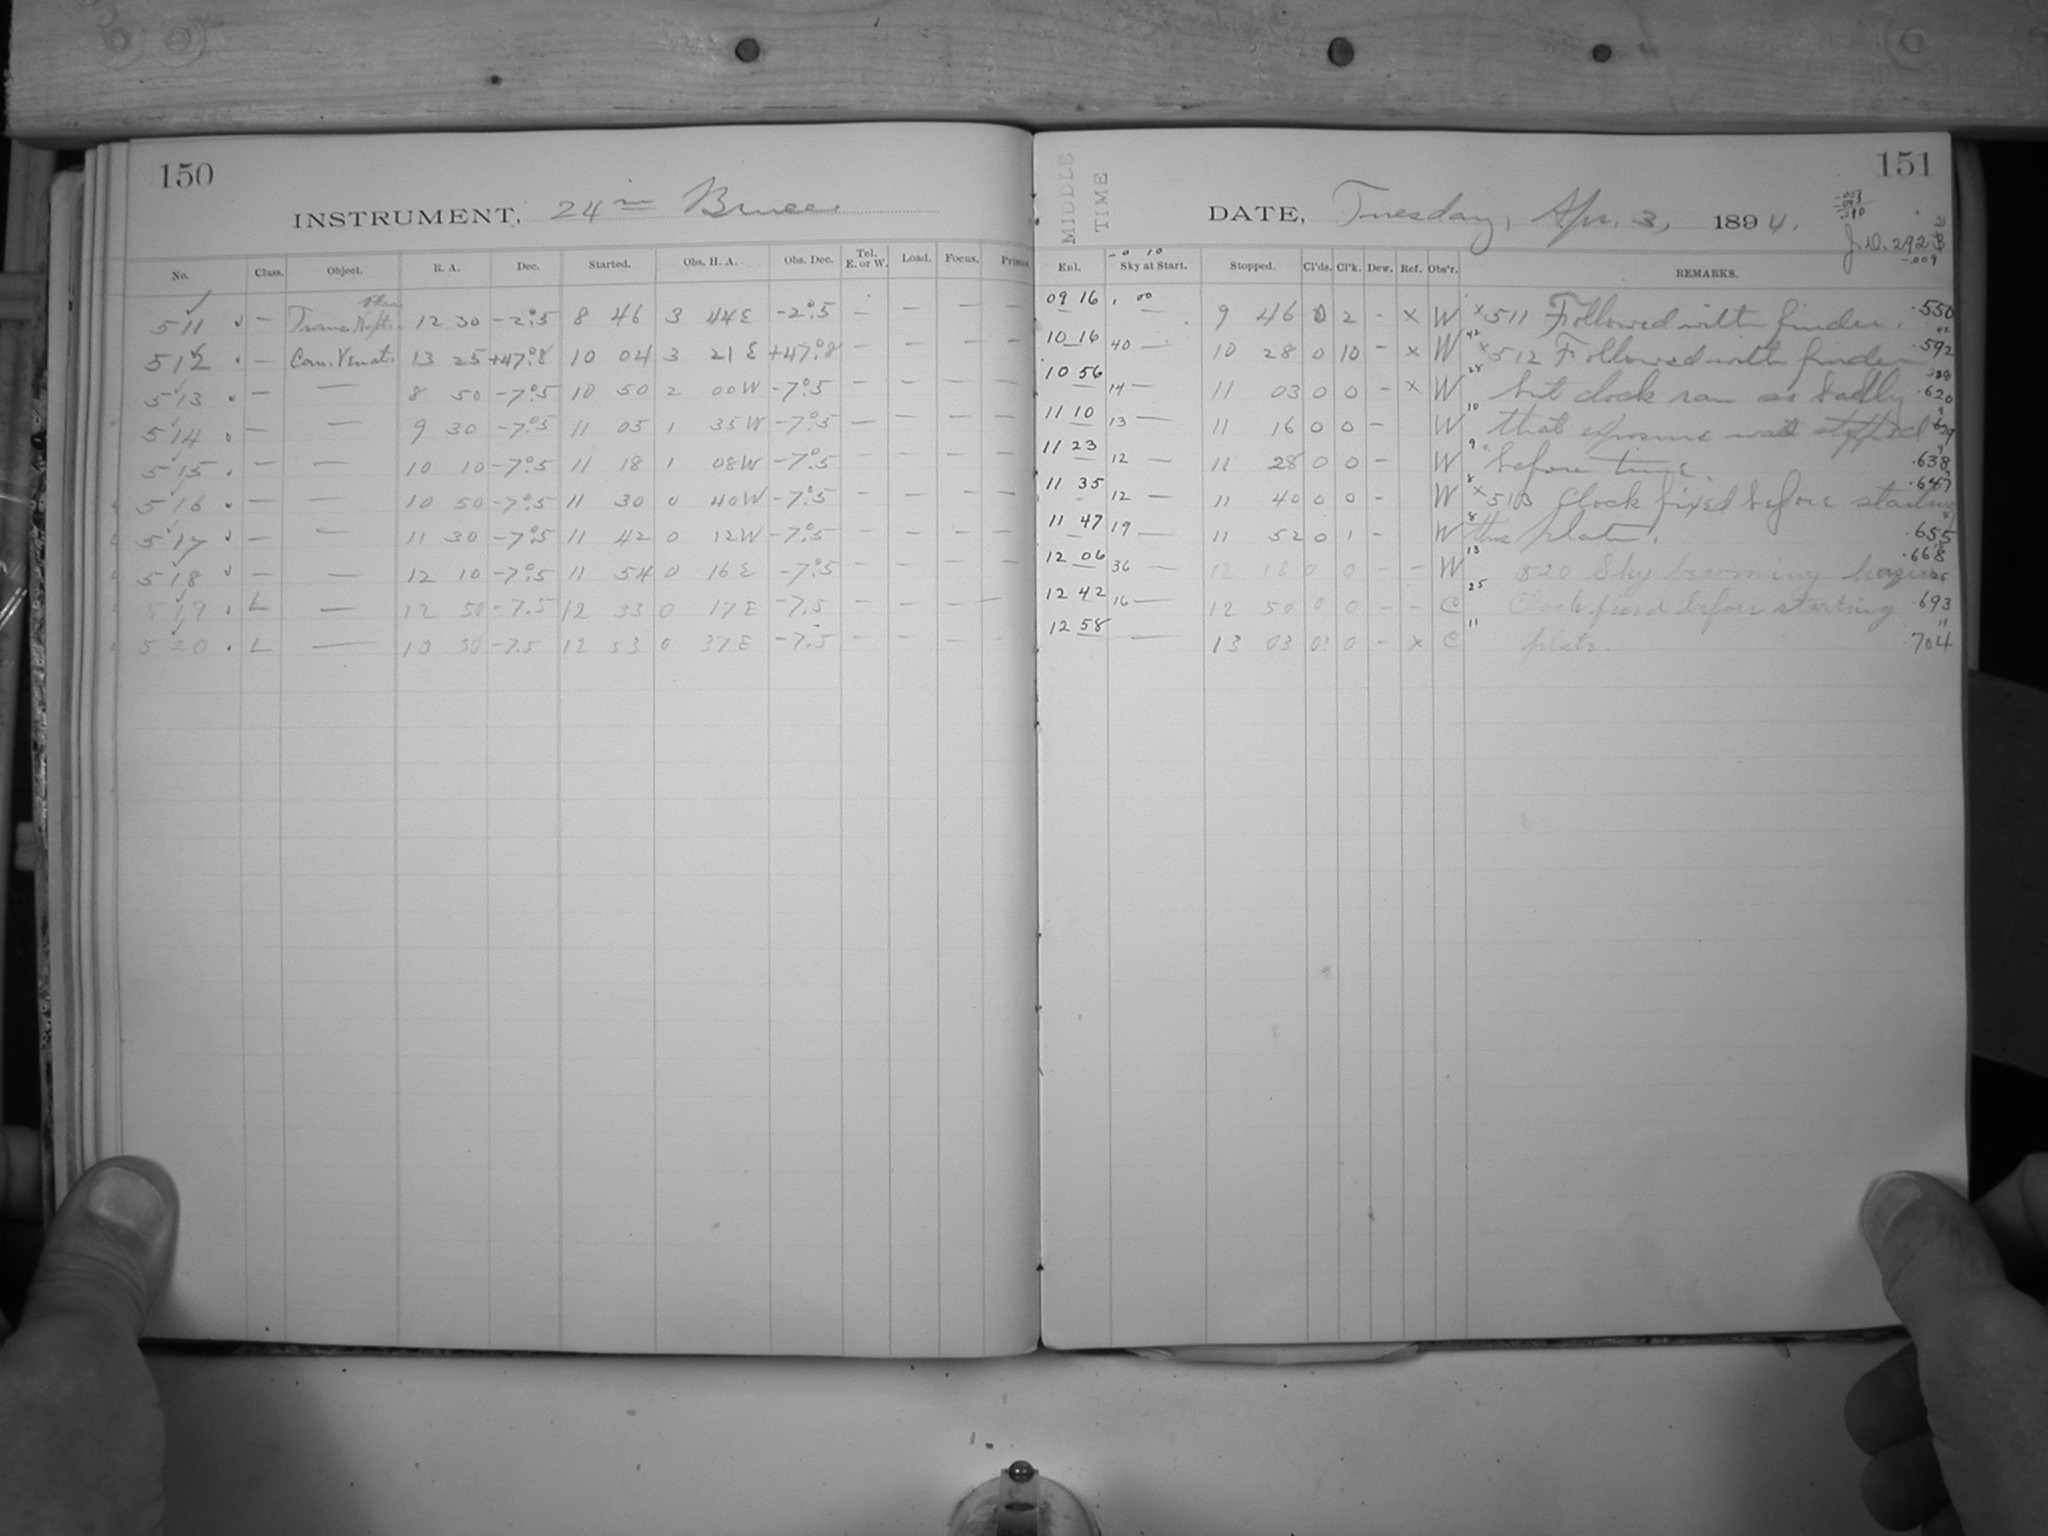 150
INSTRUMENT, 24 in Bruce
No. Class. Object. R. A. Dec. Started. Obs. H. A. Obs. Dec. Tel. E. or W. Load. Focus. Prism
511 — 12 30 -2°.5 8 46 3 44 E -2°.5 — — — —
512 — Can. Venat. 13 25 +47°.8 10 04 3 21 E +47°.8 — — — —
513 — — 8 50 -7°.5 10 50 2 00 W -7°.5 — — — —
514 — — 9 30 -7°.5 11 05 1 35 W -7°.5 — — — —
515 — — 10 10 -7°.5 11 18 1 08 W -7°.5 — — — —
516 — — 10 50 -7°.5 11 30 0 40 W -7°.5 — — — —
517 — — 11 30 -7°.5 11 42 0 12 W -7°.5 — — — —
518 — — 12 10 -7°.5 11 54 0 16 E -7°.5 — — — —
519 L — 12 50 -7.5 12 33 0 17 E -7.5 — — — —
520 L — 13 30 -7.5 12 53 0 37 E -7.5 — — — —
151
MIDDLE
TIME
DATE, Tuesday, Apr. 3, 1894.
J.D. 292
-.009
Enl. Sky at Start. Stopped. Cl'ds. Cl'k. Dew. Ref. Obs'r. REMARKS.
-0 10
09 16 1 00 — 9 46 0 2 - x W x 511 Followed with finder. .550
10 16 40 — 10 28 0 10 - x W 42 x 512 Followed with finder .592
10 56 14 — 11 03 0 0 - x W 28 but clock ran so badly .620
11 10 13 — 11 16 0 0 - W 10 that exposure was stopped 629
11 23 12 — 11 28 0 0 - W 9 before time. .638
11 35 12 — 11 40 0 0 - W 8 x 513 Clock fixed before starting .647
11 47 19 — 11 52 0 1 - W 8 this plate. .655
12 06 36 — 12 18 0 0 - - W 13 520 Sky becoming hazier .668
12 42 16 — 12 50 0 0 - - C 25 Clock fixed before starting .693
12 58 — 13 03 0? 0 - x C 11 plate. .704